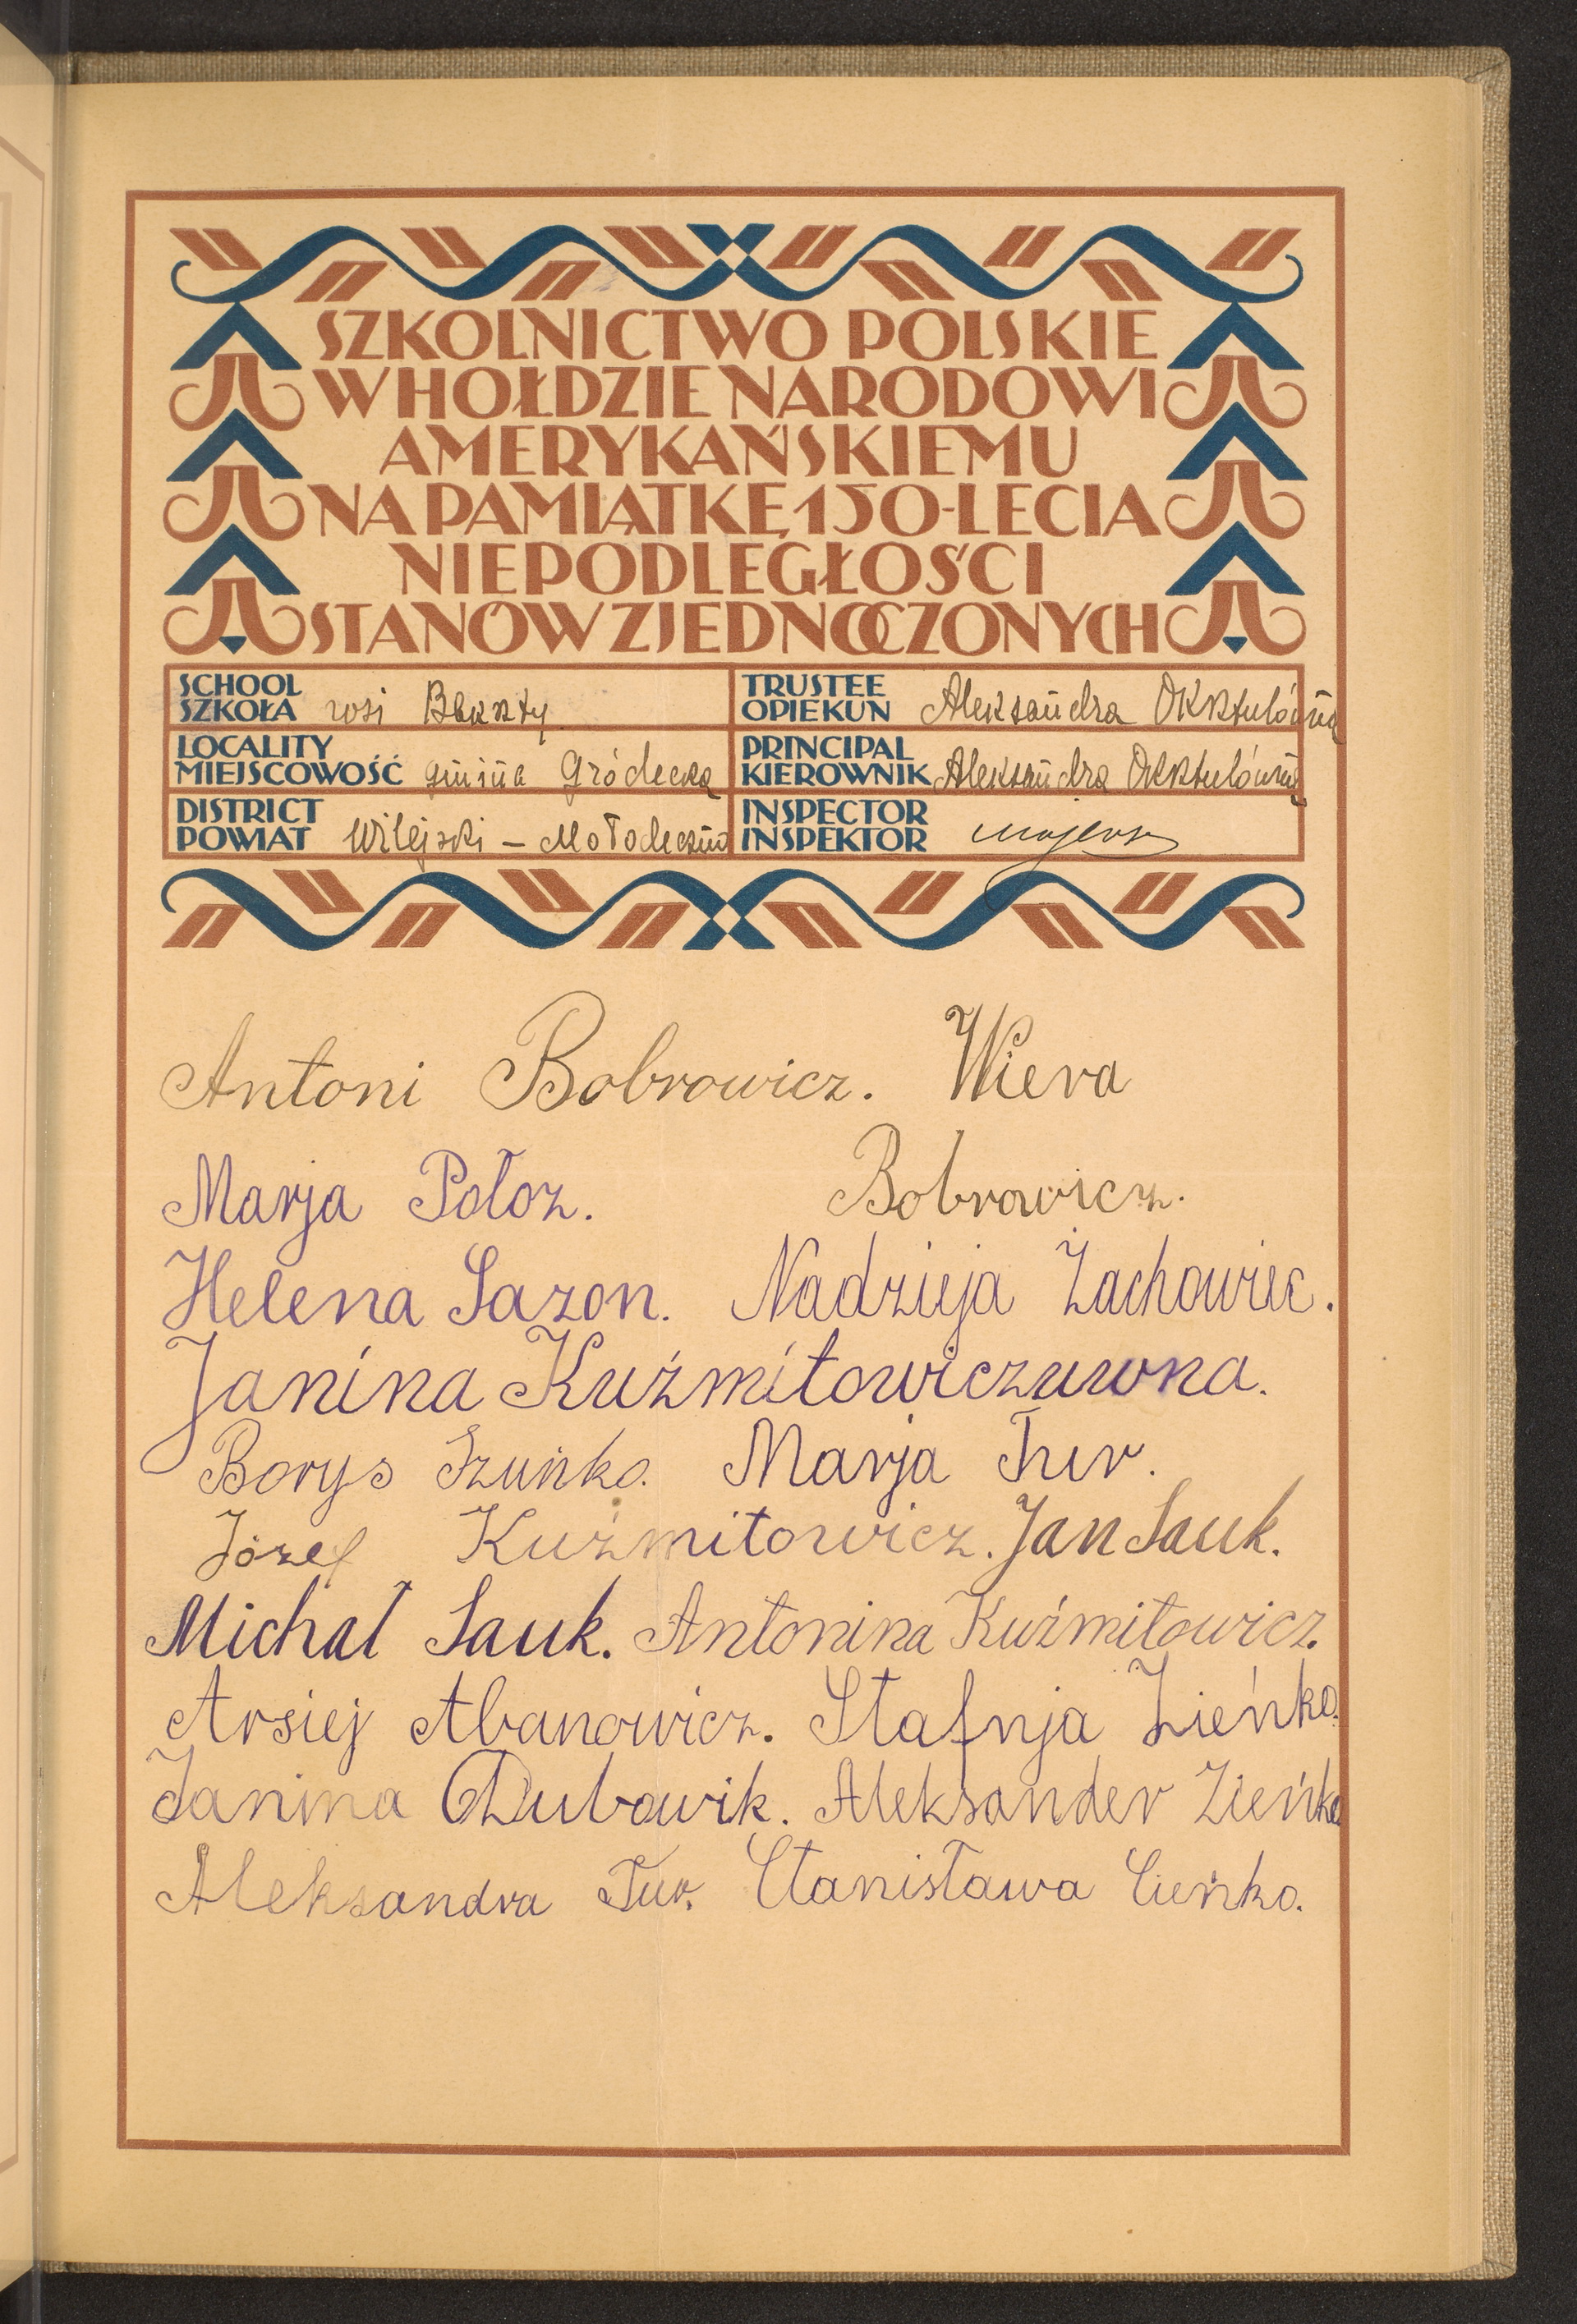 SZKOLNICTWO POLSKIE
W HOŁDZIE NARODOWI
AMERYKAŃSKIEMU
NA PAMIĄTKĘ 150-LECIA
NIEPODLEGŁOŚCI
STANÓW ZJEDNOCZONYCH
SCHOOL
SZKOŁA wsi
TRUSTEE
OPIEKUN Aleksandra
LOCALITY
MIEJSCOWOŚĆ gmina Gródecka
PRINCIPAL
KIEROWNIK Aleksandra
DISTRICT
POWIAT Wilejski – Mołodeczno
INSPECTOR
INSPEKTOR
Antoni Bobrowicz. Wiera
Marja Połoz. Bobrowicz.
Helena Sazon. Nadzieja Żachowiec.
Janina Kuźmitowiczuwna.
Borys Szuńko. Marja Tur.
Józef Kuźmitowicz. Jan Sauk.
Michał Sauk. Antonina Kuźmitowicz.
Arsiej Abanowicz. Stafnja Zieńko.
Janina Dubowik. Aleksander Zieńko
Aleksandra Tur. Stanisława Cieńko.